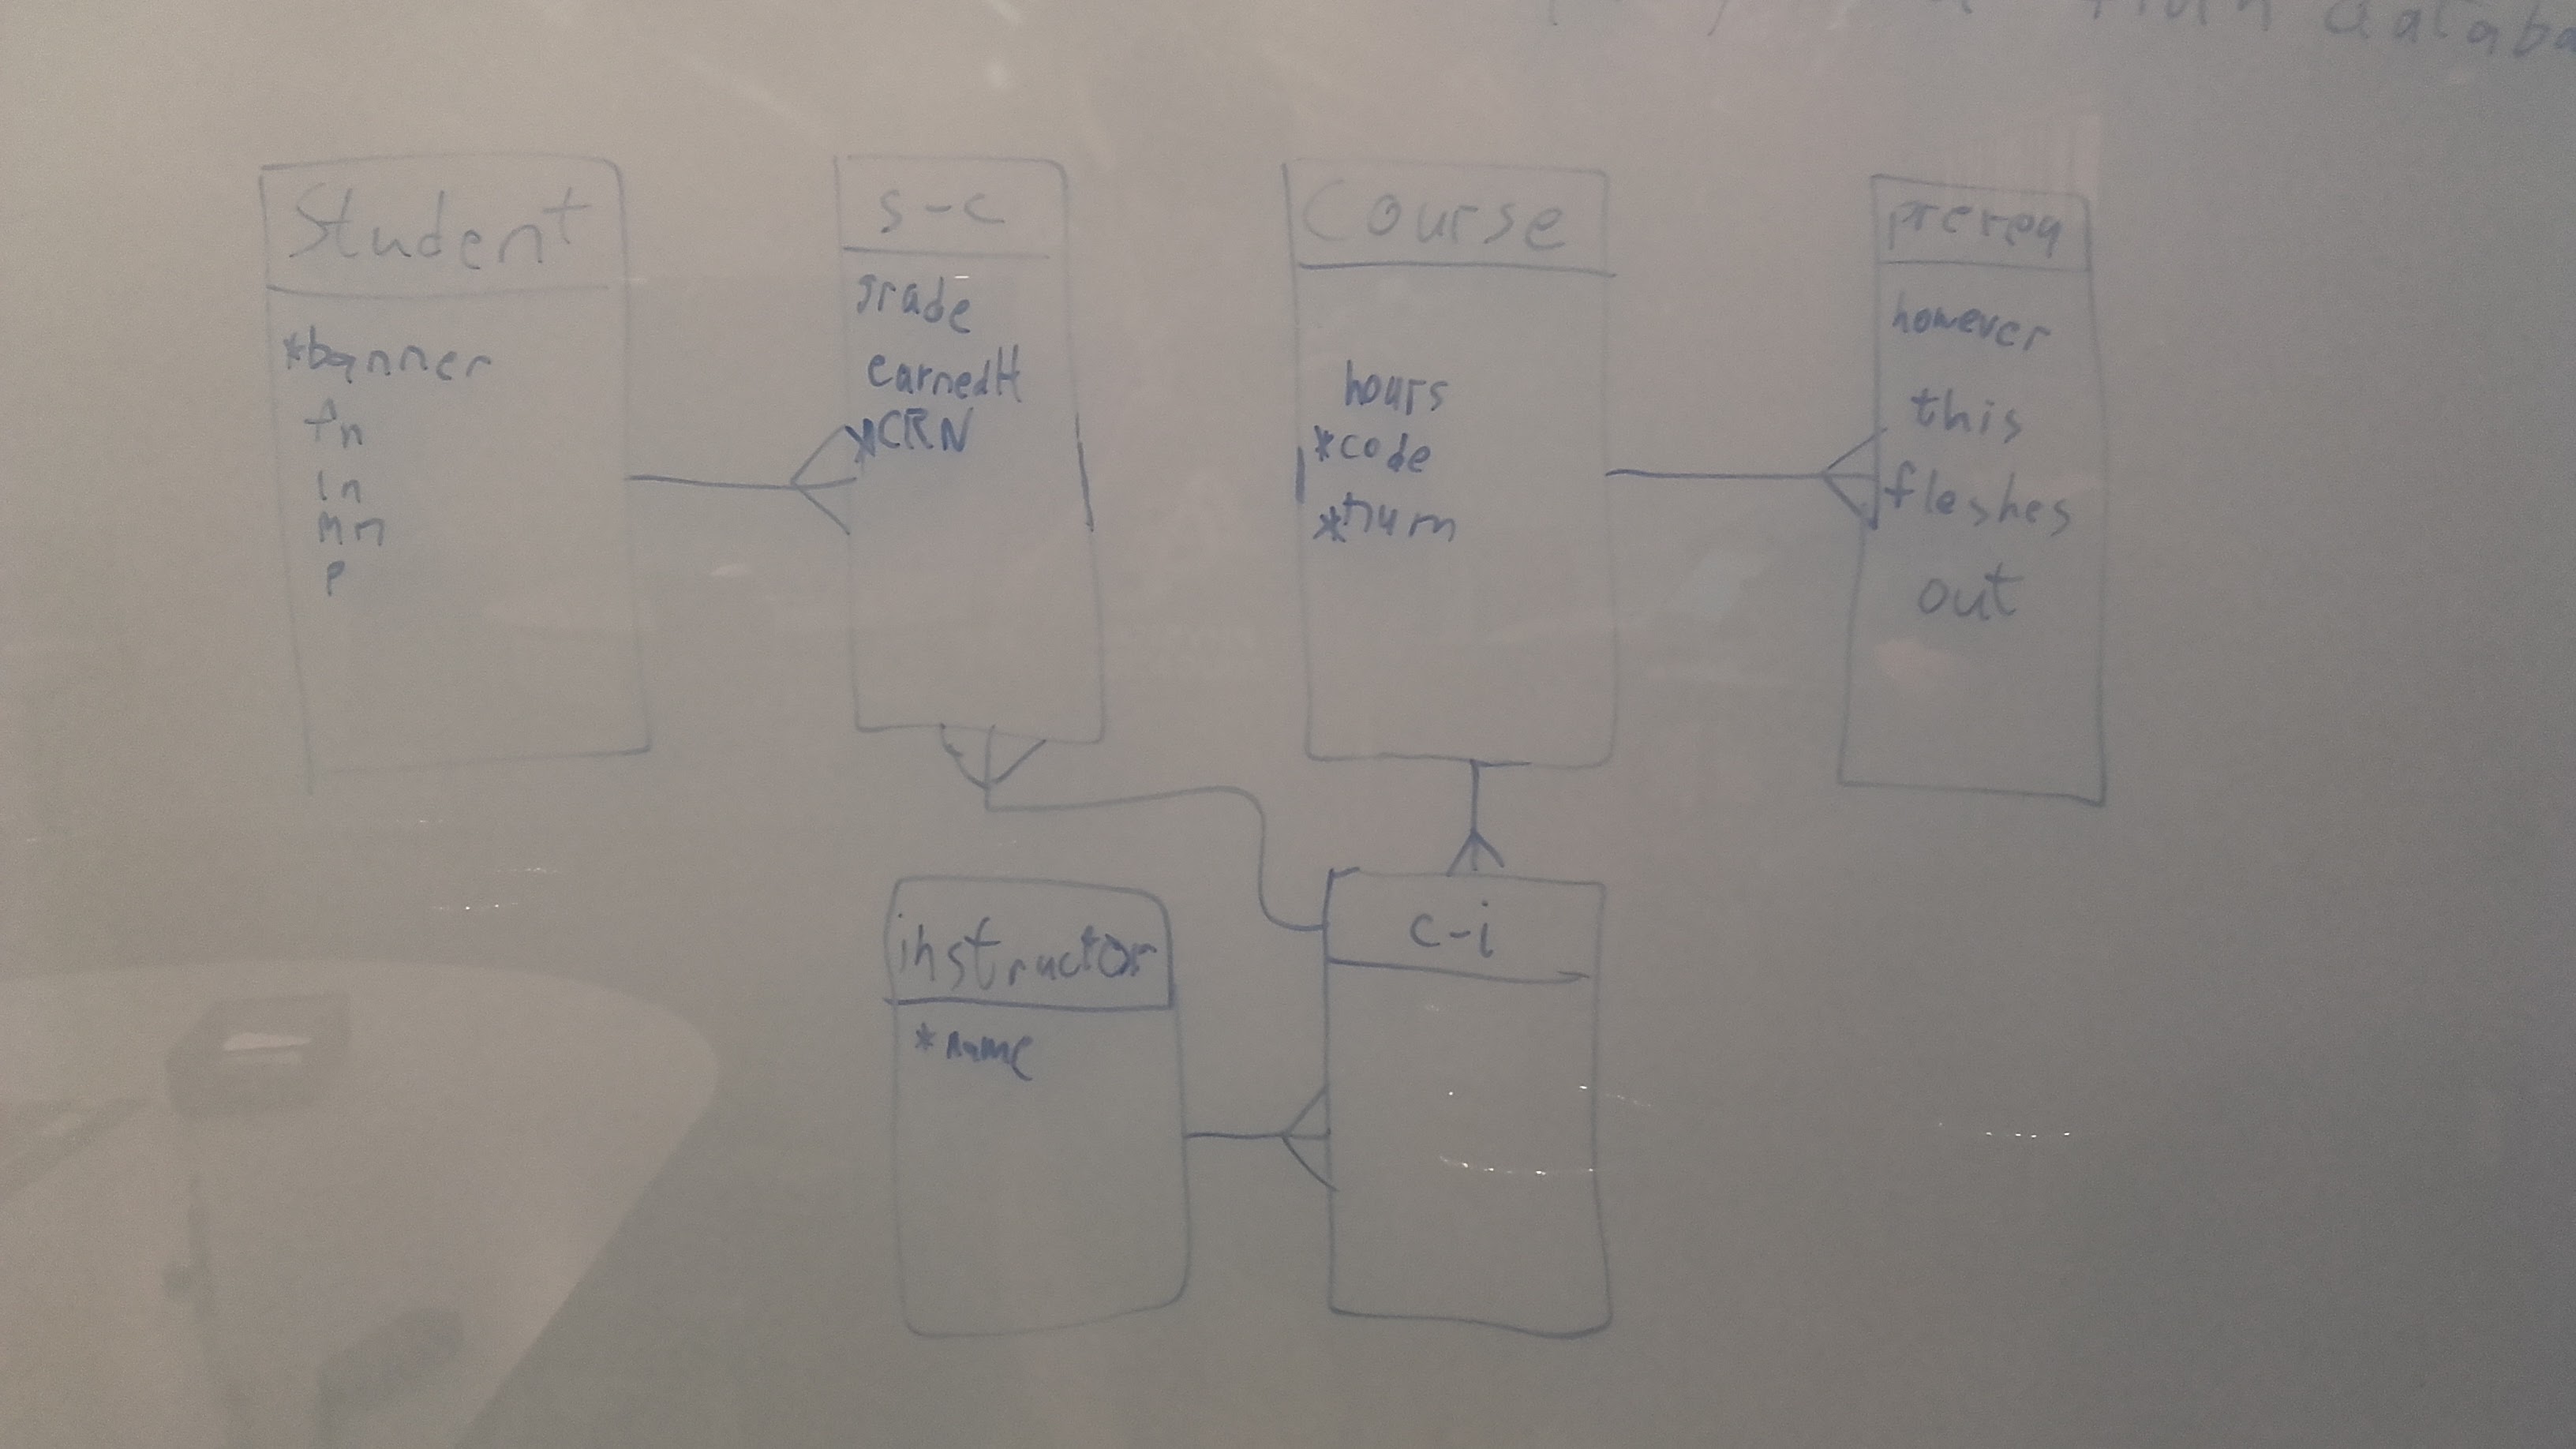 from databa
Student
*banner
fn
ln
mn
p
s-c
grade
earnedH
*CRN
Course
hours
*code
*num
prereq
however
this
fleshes
out
instructor
*name
c-i